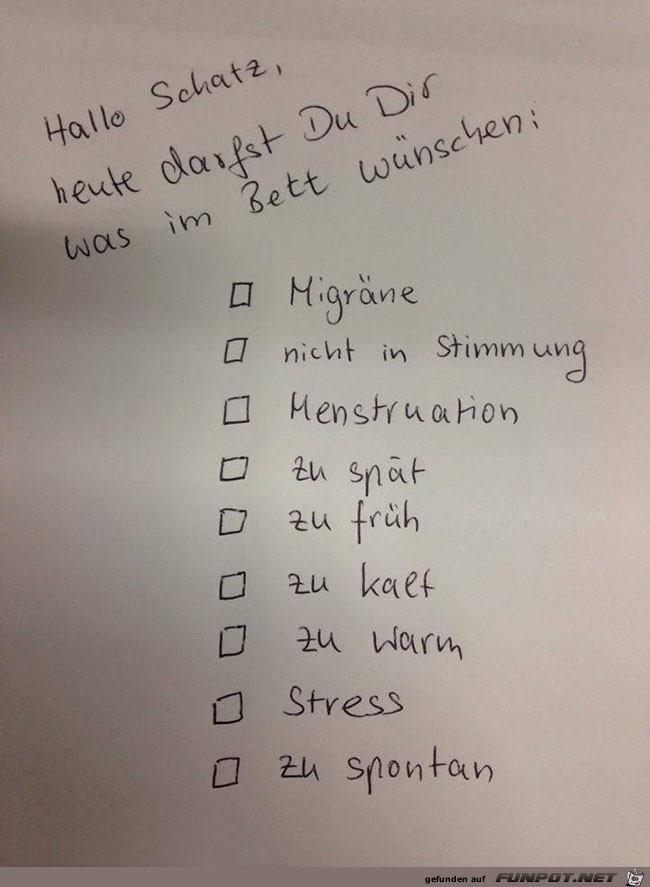 Hallo Schatz,
heute darfst Du Dir
was im Bett wünschen:
Migräne
nicht in Stimmung
Menstruation
zu spät
zu früh
zu kalt
zu warm
Stress
zu spontan
gefunden auf FUNPOT.NET